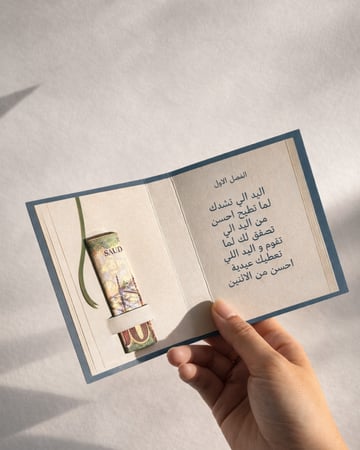 الفصل الاول
اليد الي تشدك
لما تطيح احسن
من اليد الي
تصفق لك لما
تقوم و اليد اللي
تعطيك عيدية
احسن من الاثنين
SAUD